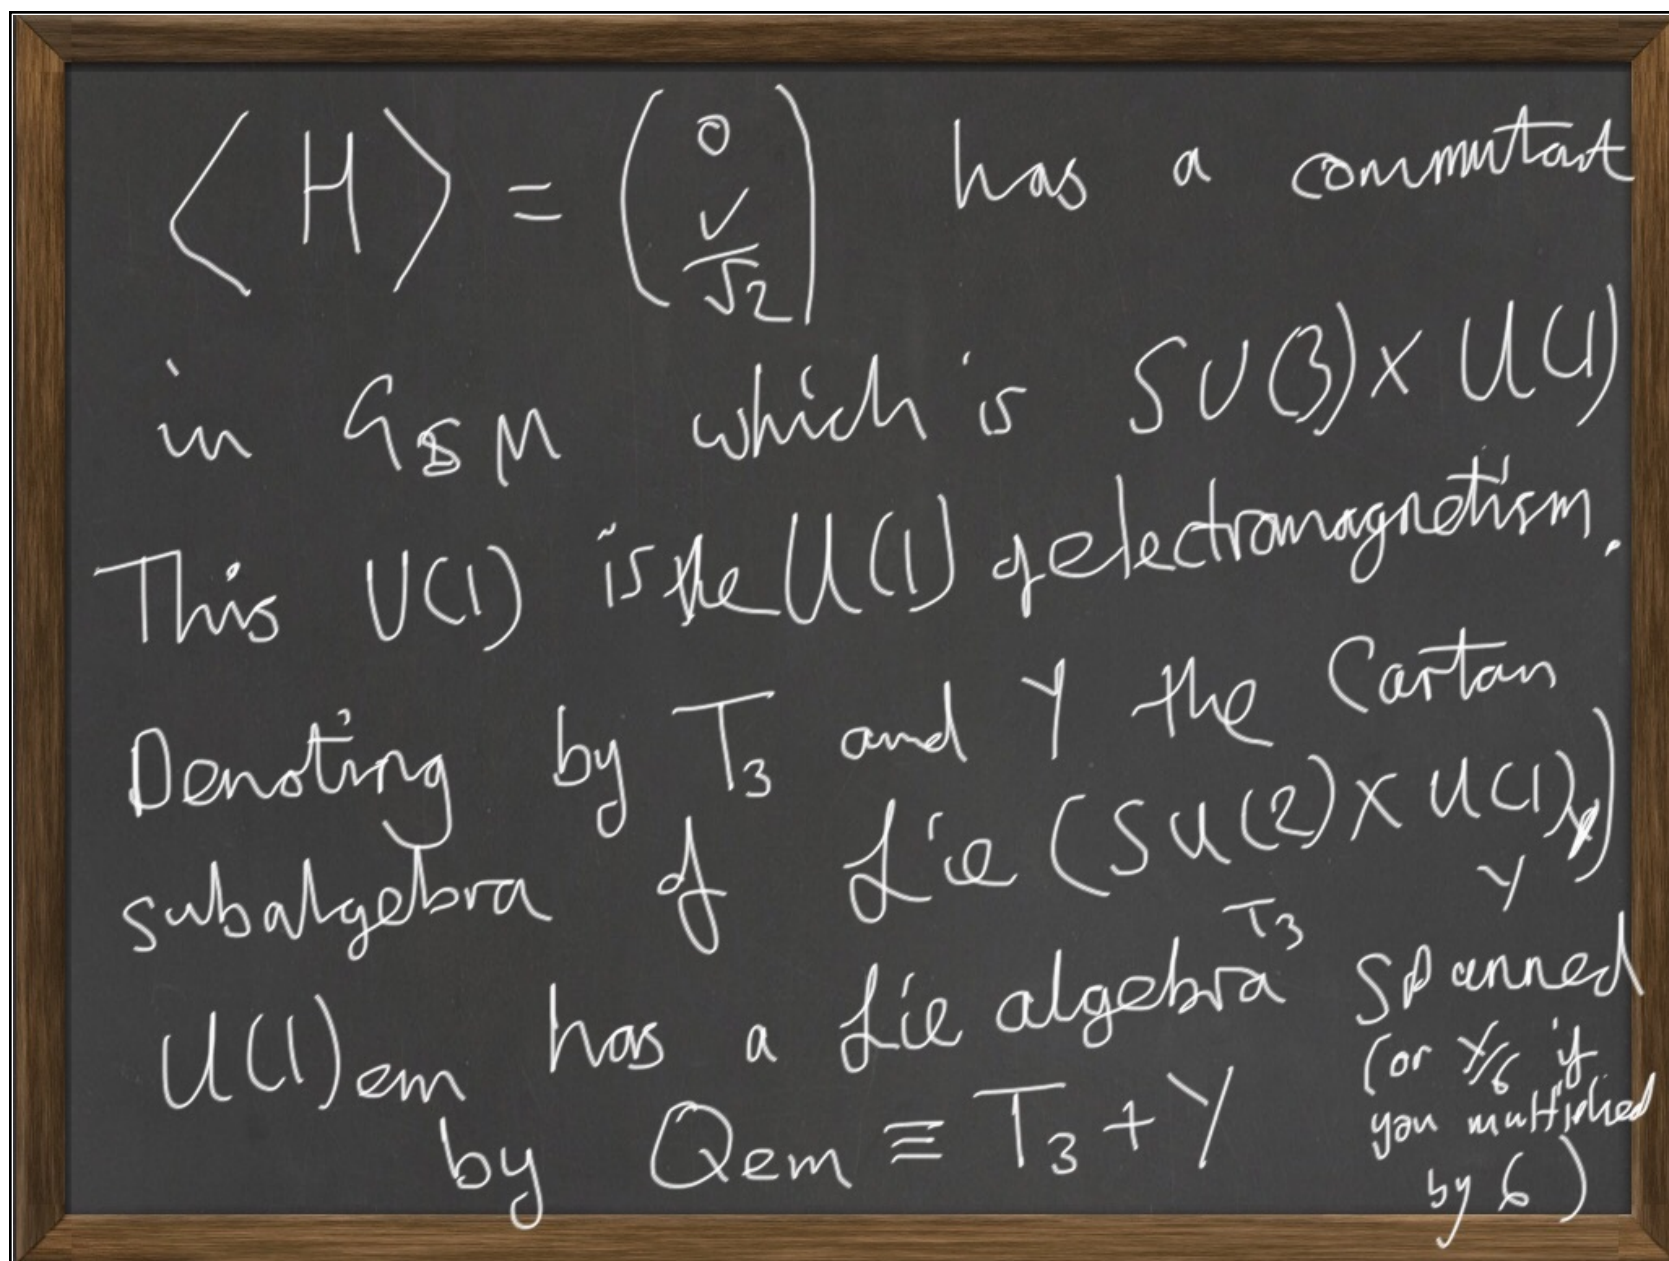 ⟨H⟩ = (0 v/√2) has a commutant
in G_SM which is SU(3) × U(1)
This U(1) is the U(1) of electromagnetism.
Denoting by T₃ and Y the Cartan
subalgebra of Lie (SU(2) × U(1)_Y)
T₃ Y
U(1)em has a Lie algebra spanned
by Qem ≡ T₃ + Y
(or Y/6 if
you multiplied
by 6)